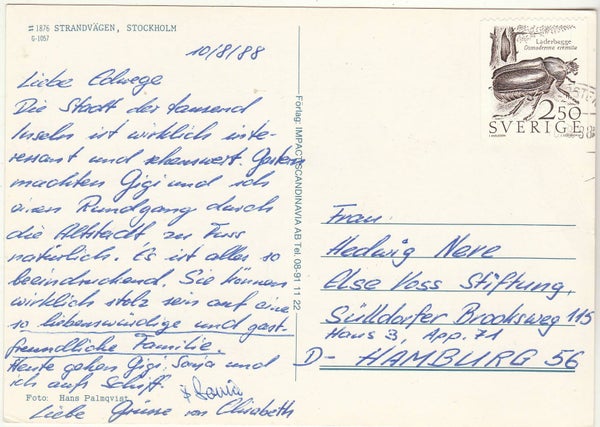 1876 STRANDVÄGEN, STOCKHOLM
G-1057
10/8/88
Liebe Edwege
Die Stadt der tausend
Inseln ist wirklich inte-
ressant und sehenswert. Gestern
machten Gigi und ich
einen Rundgang durch
die Altstadt zu Fuss
natürlich. Es ist alles so
beeindruckend. Sie können
wirklich stolz sein auf eine
so liebenswürdige und gast-
freundliche Familie.
Heute gehen Gigi, Sonja und
ich aufs Schiff.
Sonia
Liebe Grüsse von Elisabeth
Foto: Hans Palmqvist
Förlag: IMPACT SCANDINAVIA AB Tel. 08-91 11 22
Läderbagge
Osmoderma eremita
2.50
SVERIGE
Frau
Hedwig Neve
Else Voss Stiftung,
Sülldorfer Brooksweg 115
Haus 3, App. 71
D- HAMBURG 56